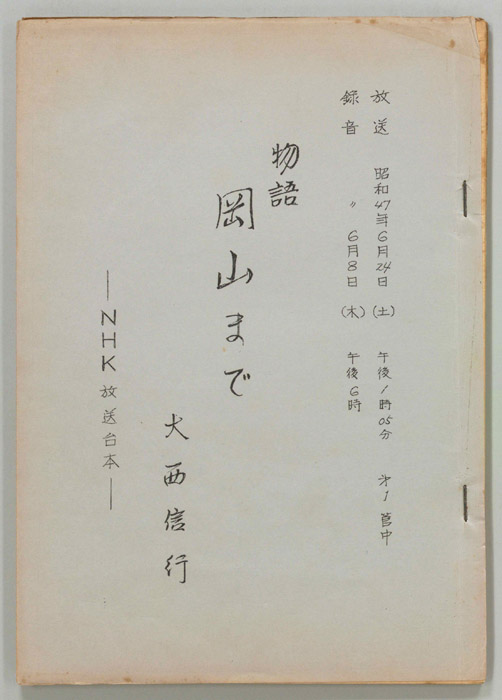 放送 昭和47年6月24日(土) 午後1時05分 才1 菅中
録音 〃 6月8日(木) 午後6時
物語
岡山まで
大西信行
―NHK放送台本―